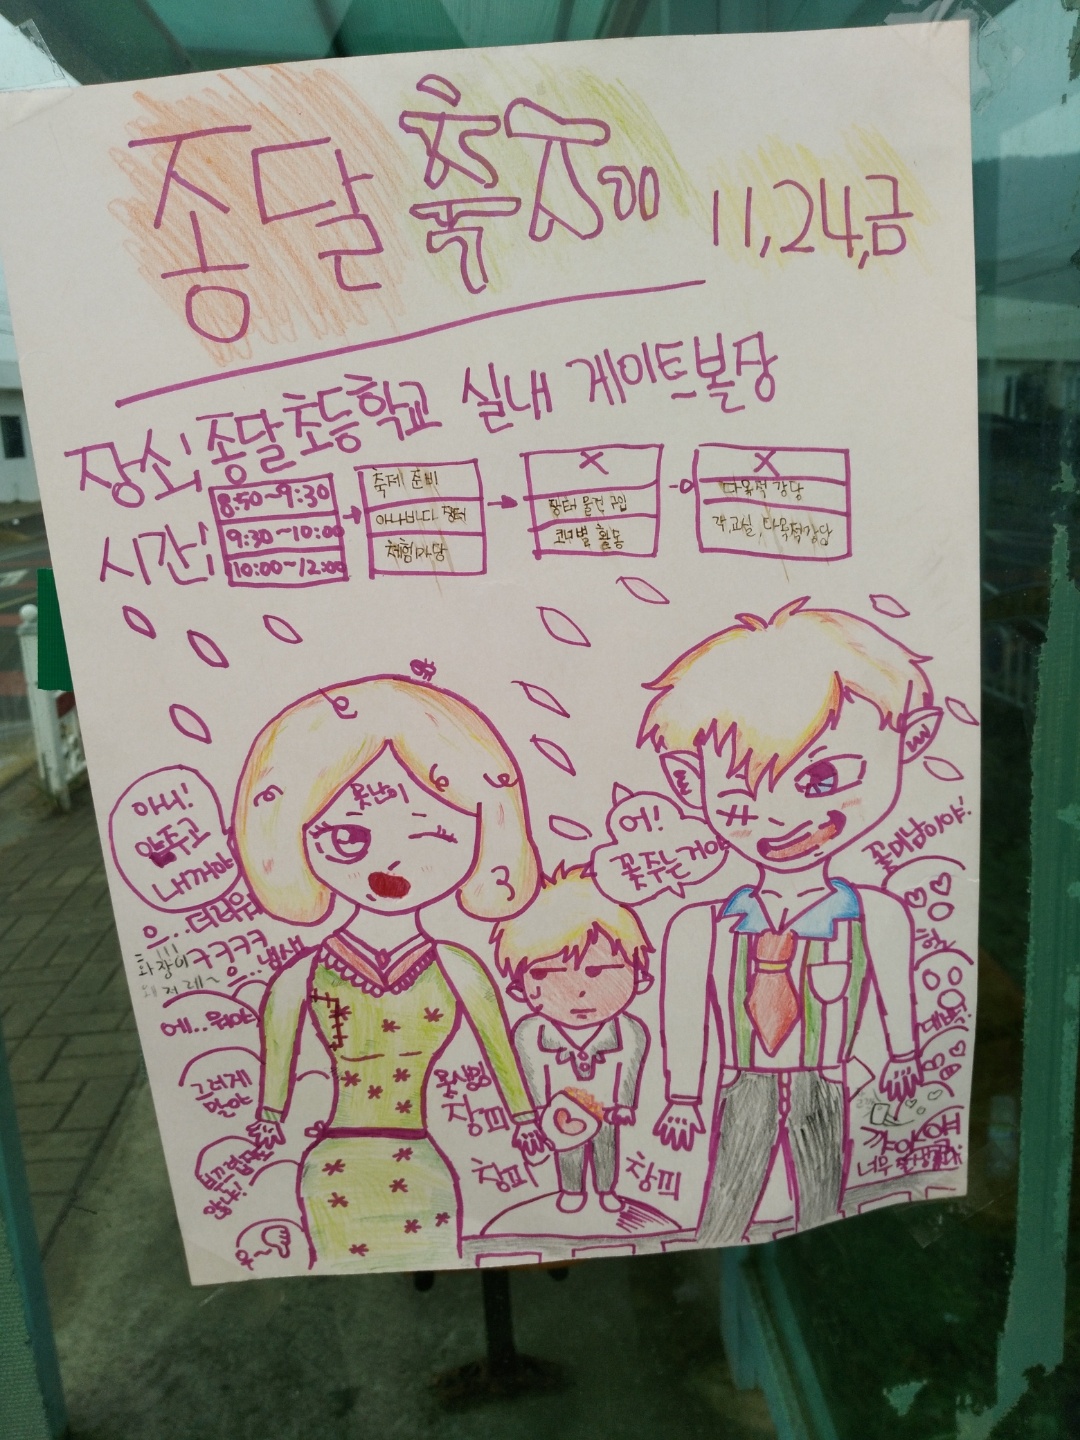 종달 축제 11,24,금
장소: 종달초등학교 실내 게이트볼장
시간:
8:50~9:30 축제 준비 X X
9:30~10:00 아나바다 장터 장터 물건 구입 다목적 강당
10:00~12:00 체험마당 코너별 활동 각 교실, 다목적강당
못난이
아니!
안주고
내꺼야
어!
꽃주는거야
꽃미남이야!
으...더러워
ㅋㅋㅋㅋ
으..냄새
화장이
왜 저래~
에..워야
그러게
말야
헐
대박!
창피
창피
창피
너무 잘생겼다!
우~